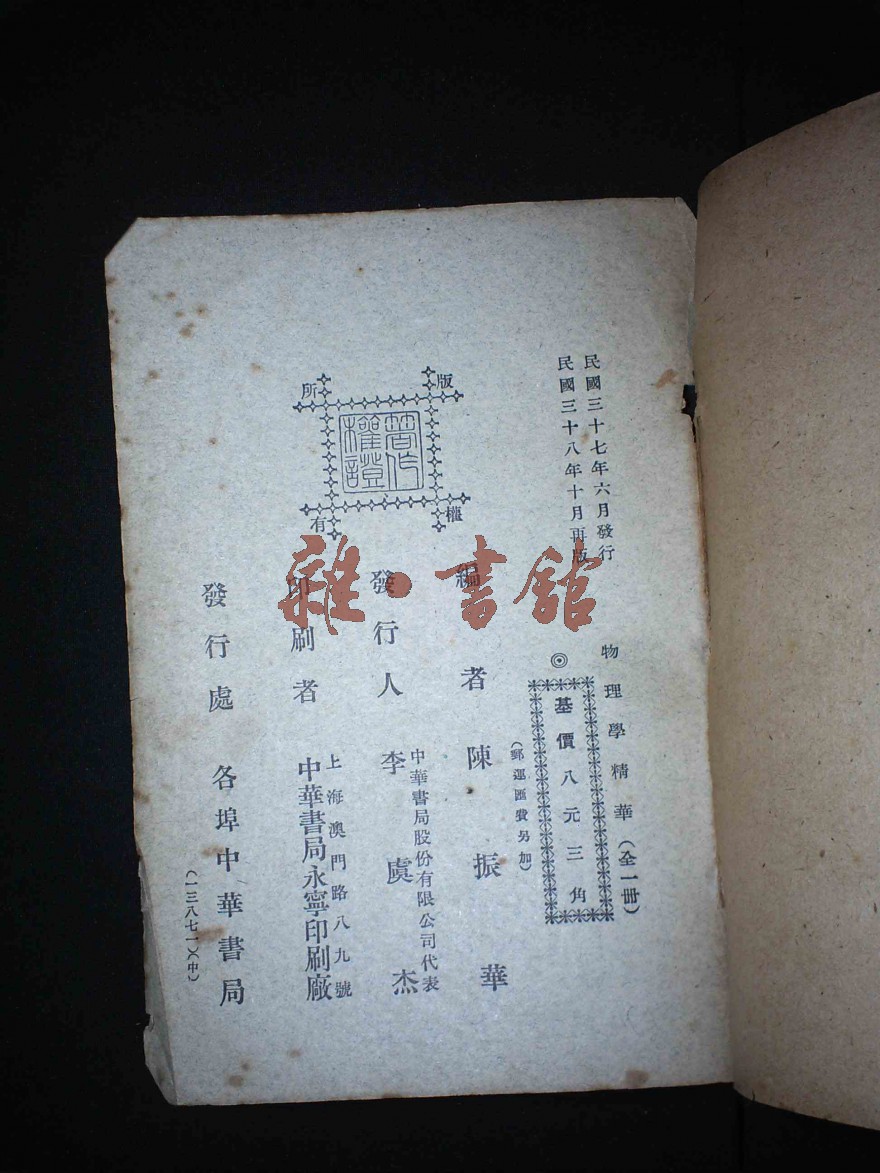 民國三十七年六月發行
民國三十八年十月再版
物理學精華（全一冊）
◎基價八元三角
（郵運匯費另加）
編者 陳振華
中華書局股份有限公司代表
發行人 李虞杰
上海澳門路八九號
印刷者 中華書局永寧印刷廠
發行處 各埠中華書局
（一三八七一）（中）
版權所有
著作權證
雜·書館